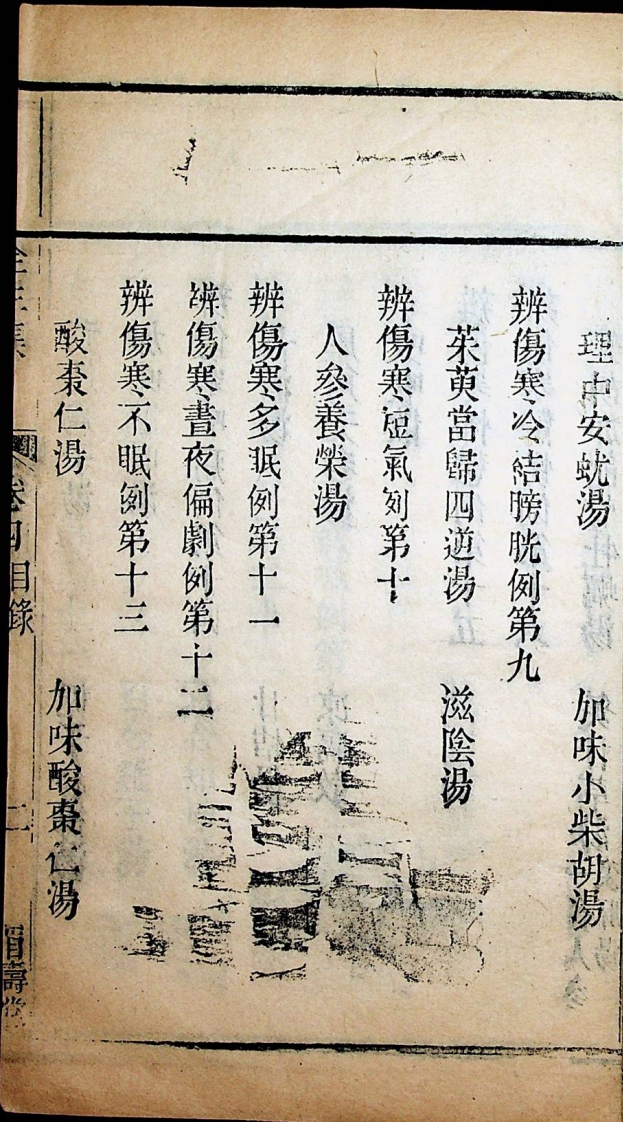 理中安蚘湯　加味小柴胡湯
辨傷寒冷結膀胱例第九
茱萸當歸四逆湯　滋陰湯
辨傷寒短氣例第十
人參養榮湯
辨傷寒多眠例第十一
辨傷寒晝夜偏劇例第十二
辨傷寒不眠例第十三
酸棗仁湯　加味酸棗仁湯
全生集　卷四目錄　二